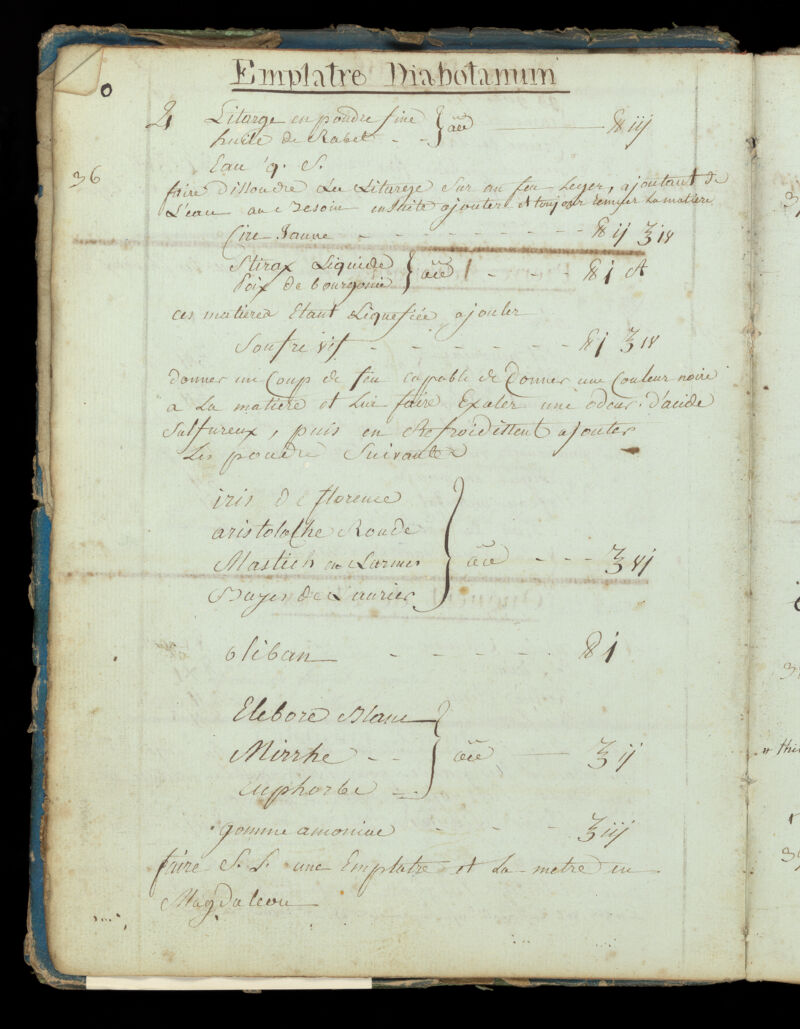 Emplatre Diabotanum
36
♃ Litarge en poudre fine } āā ——— ℔ iij
huile de Rabet - -
Eau q. S.
faire Dissoudre La Litarge Sur un feu Leger, ajoutant de
L'eau au Besoin ensuite ajouter et toujour remuer La matiere
Cire Jaune - - - - - - - - ℔ ij ℥ iv
Stirax Liquide } āā - - - ℔ j
Poix de bourgonie
ces matieres Etant Liquefiée ajouter
Soufre vif - - - - - - ℔ j ℥ iv
donner un Coup de feu capable de Donner une Couleur noire
a La matiere et Lui faire Exaler une odeur d'acide
Sulfureux, puis en Refroidissent ajouter
Les poudre Suivantes
iris de florence
aristoloche Ronde
Mastich en Larmes } āā - - - ℥ vj
Bayes de Laurier
oliban - - - - - ℔ j
Elebore Blanc
Mirrhe - - } āā — ℥ ij
euphorbe -
gomme amoniac - - - ℥ iij
faire S. L. une Emplatre et La metre en
Magdaleon